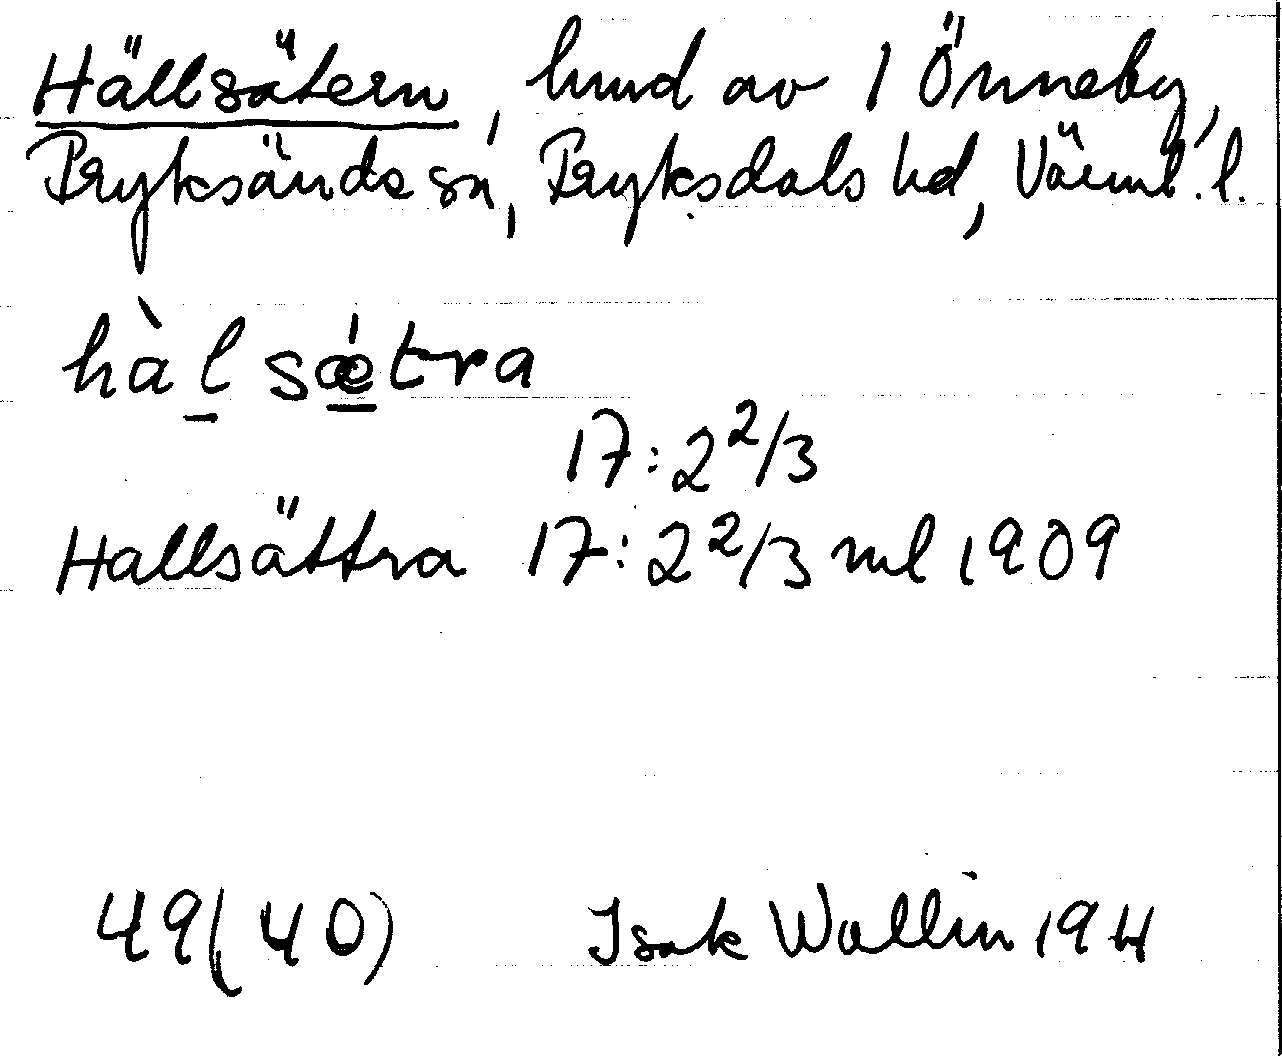 Hällsätern, hmd av 1 Önneby,
Fryksände sn, Fryksdals hd, Värml. l.
hàl sǽtra
17:2 2/3
Hallsättra 17:2 2/3 ml 1909
49(40) Isak Wallin